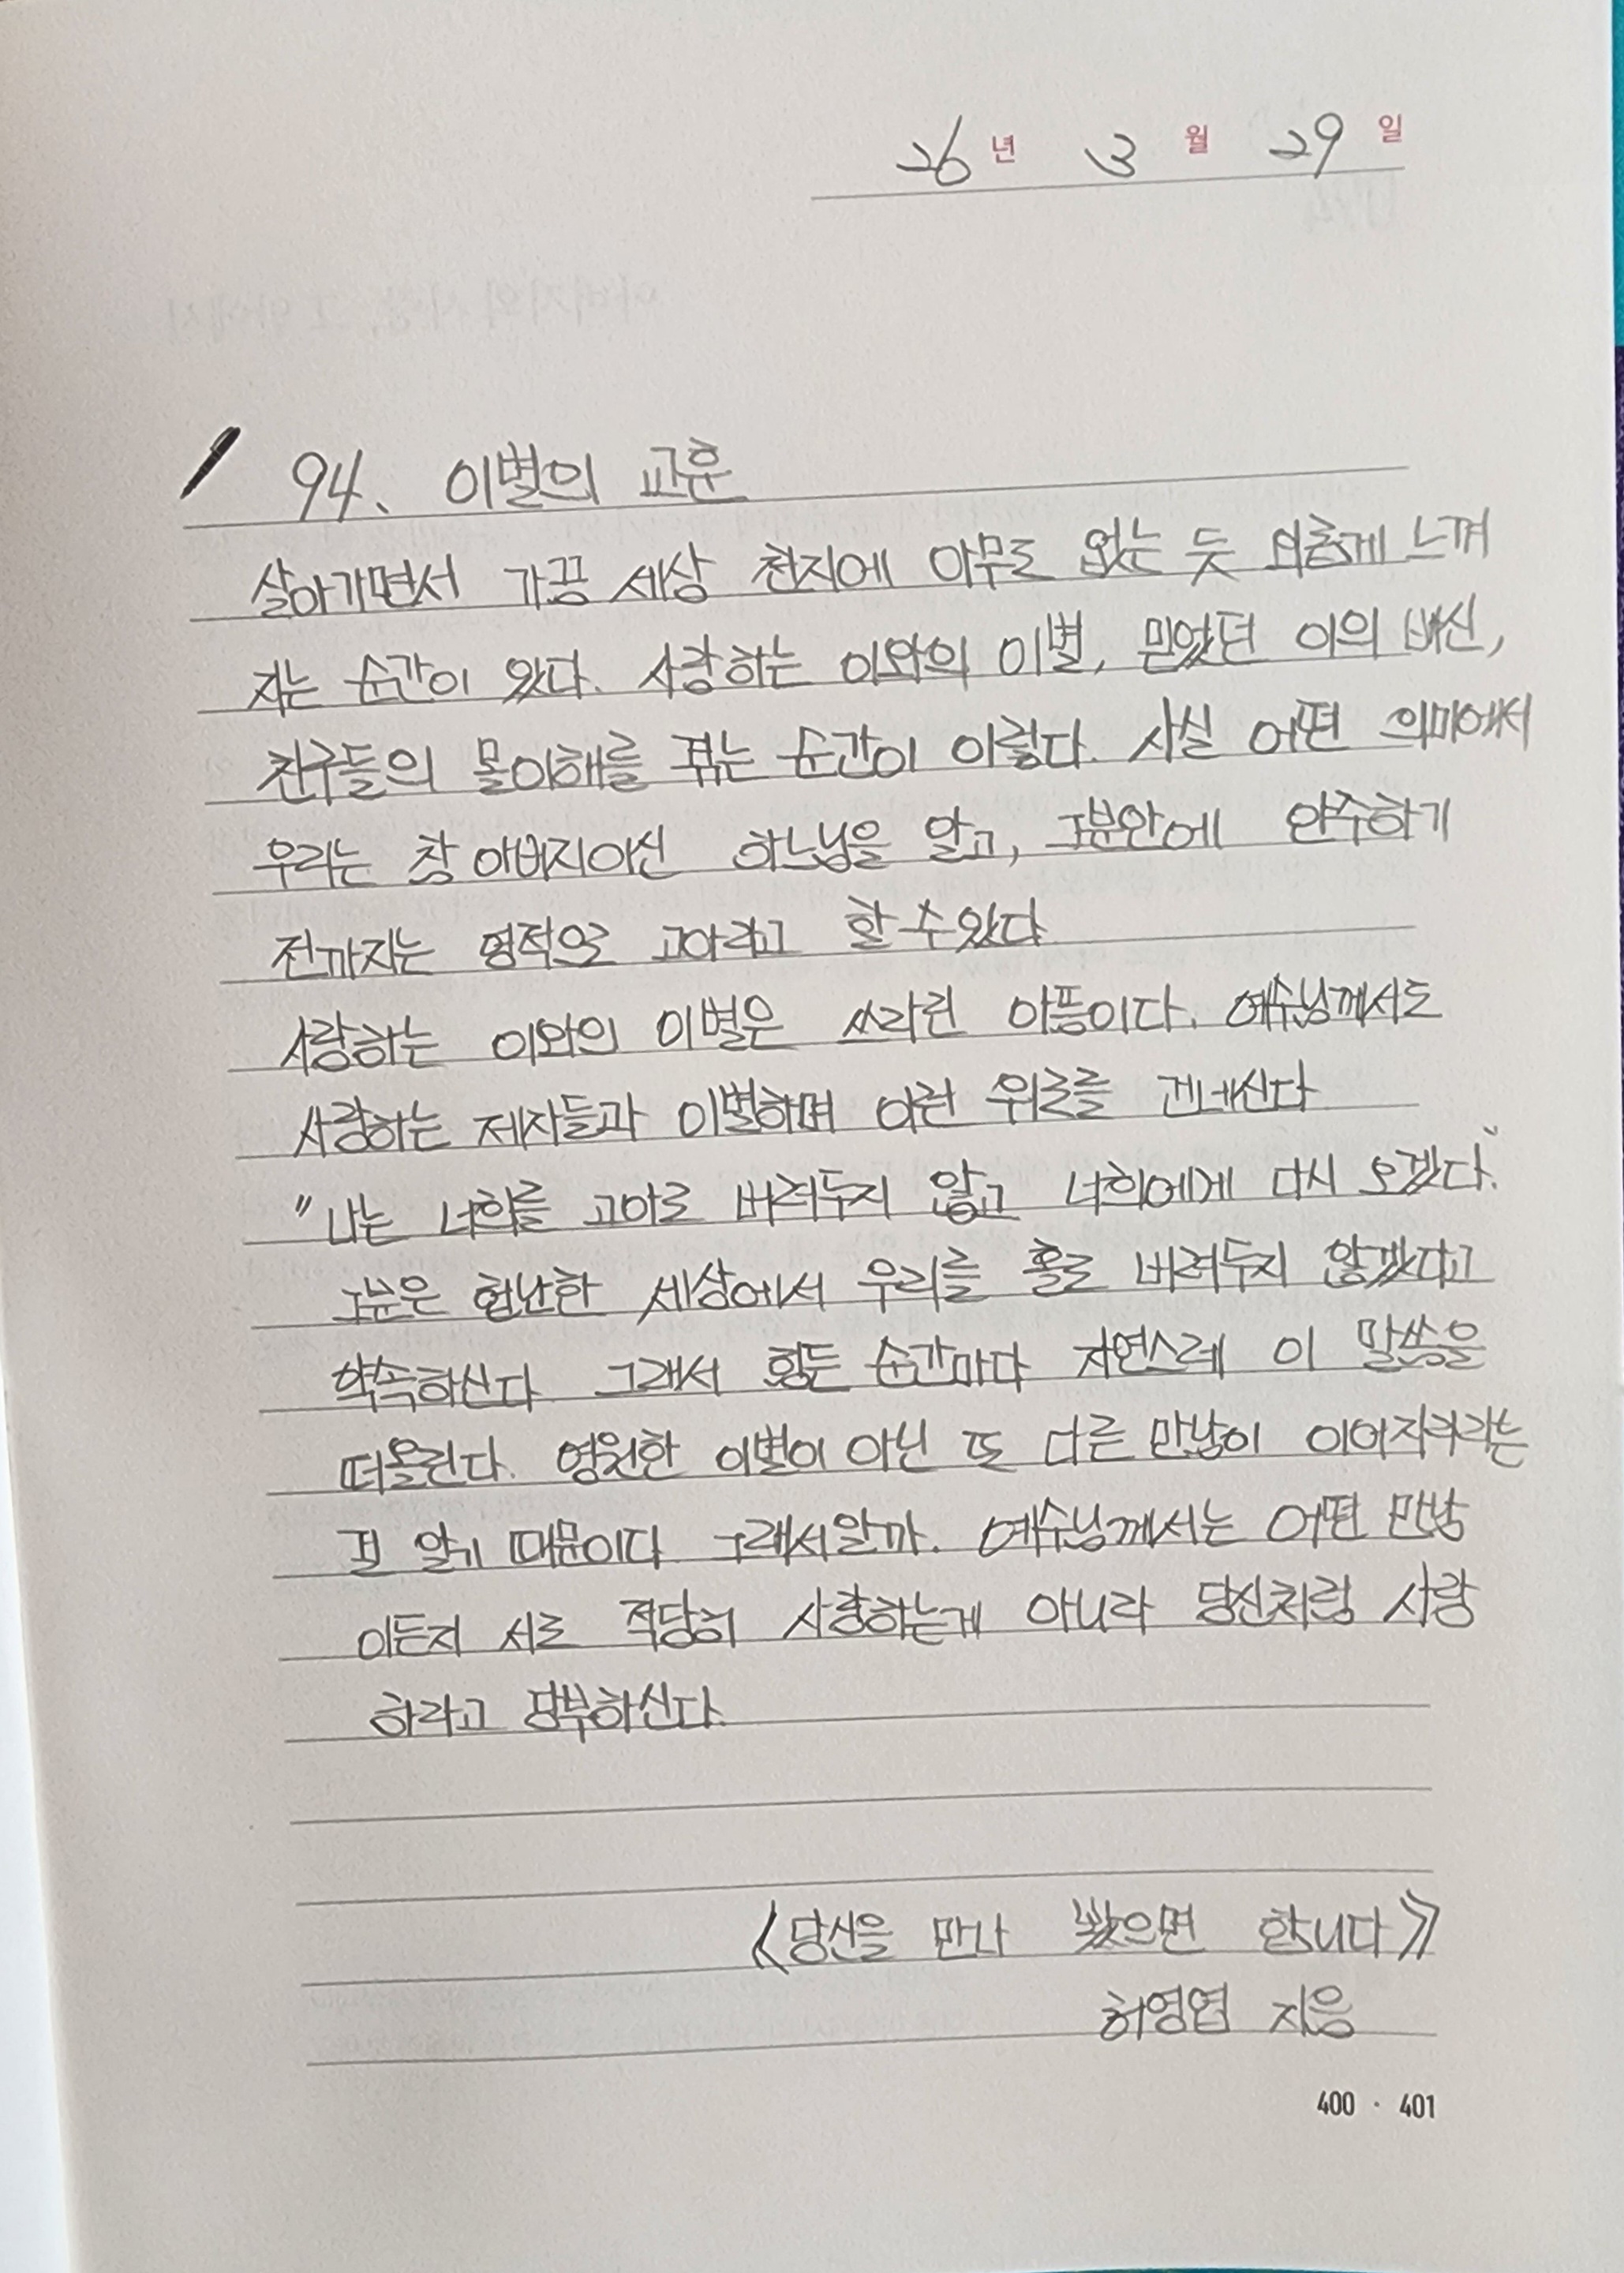 26년 3월 29일
94. 이별의 교훈
살아가면서 가끔 세상 천지에 아무도 없는 듯 외롭게 느껴
지는 순간이 있다. 사랑하는 이와의 이별, 믿었던 이의 배신,
친구들의 몰이해를 겪는 순간이 이렇다. 사실 어떤 의미에서
우리는 참 아버지이신 하느님을 알고, 그분안에 안주하기
전까지는 영적으로 고아라고 할 수 있다
사랑하는 이와의 이별은 쓰라린 아픔이다. 예수님께서도
사랑하는 제자들과 이별하며 이런 위로를 건네신다
"나는 너희를 고아로 버려두지 않고 너희에게 다시 오겠다."
그분은 험난한 세상에서 우리를 홀로 버려두지 않겠다고
약속하신다 그래서 힘든 순간마다 자연스레 이 말씀을
떠올린다. 영원한 이별이 아닌 또 다른 만남이 이어지리라는
걸 알기 때문이다 그래서일까. 예수님께서는 어떤 만남
이든지 서로 적당히 사랑하는게 아니라 당신처럼 사랑
하라고 당부하신다.
《당신을 만나 봤으면 합니다》
허영엽 지음
400 · 401